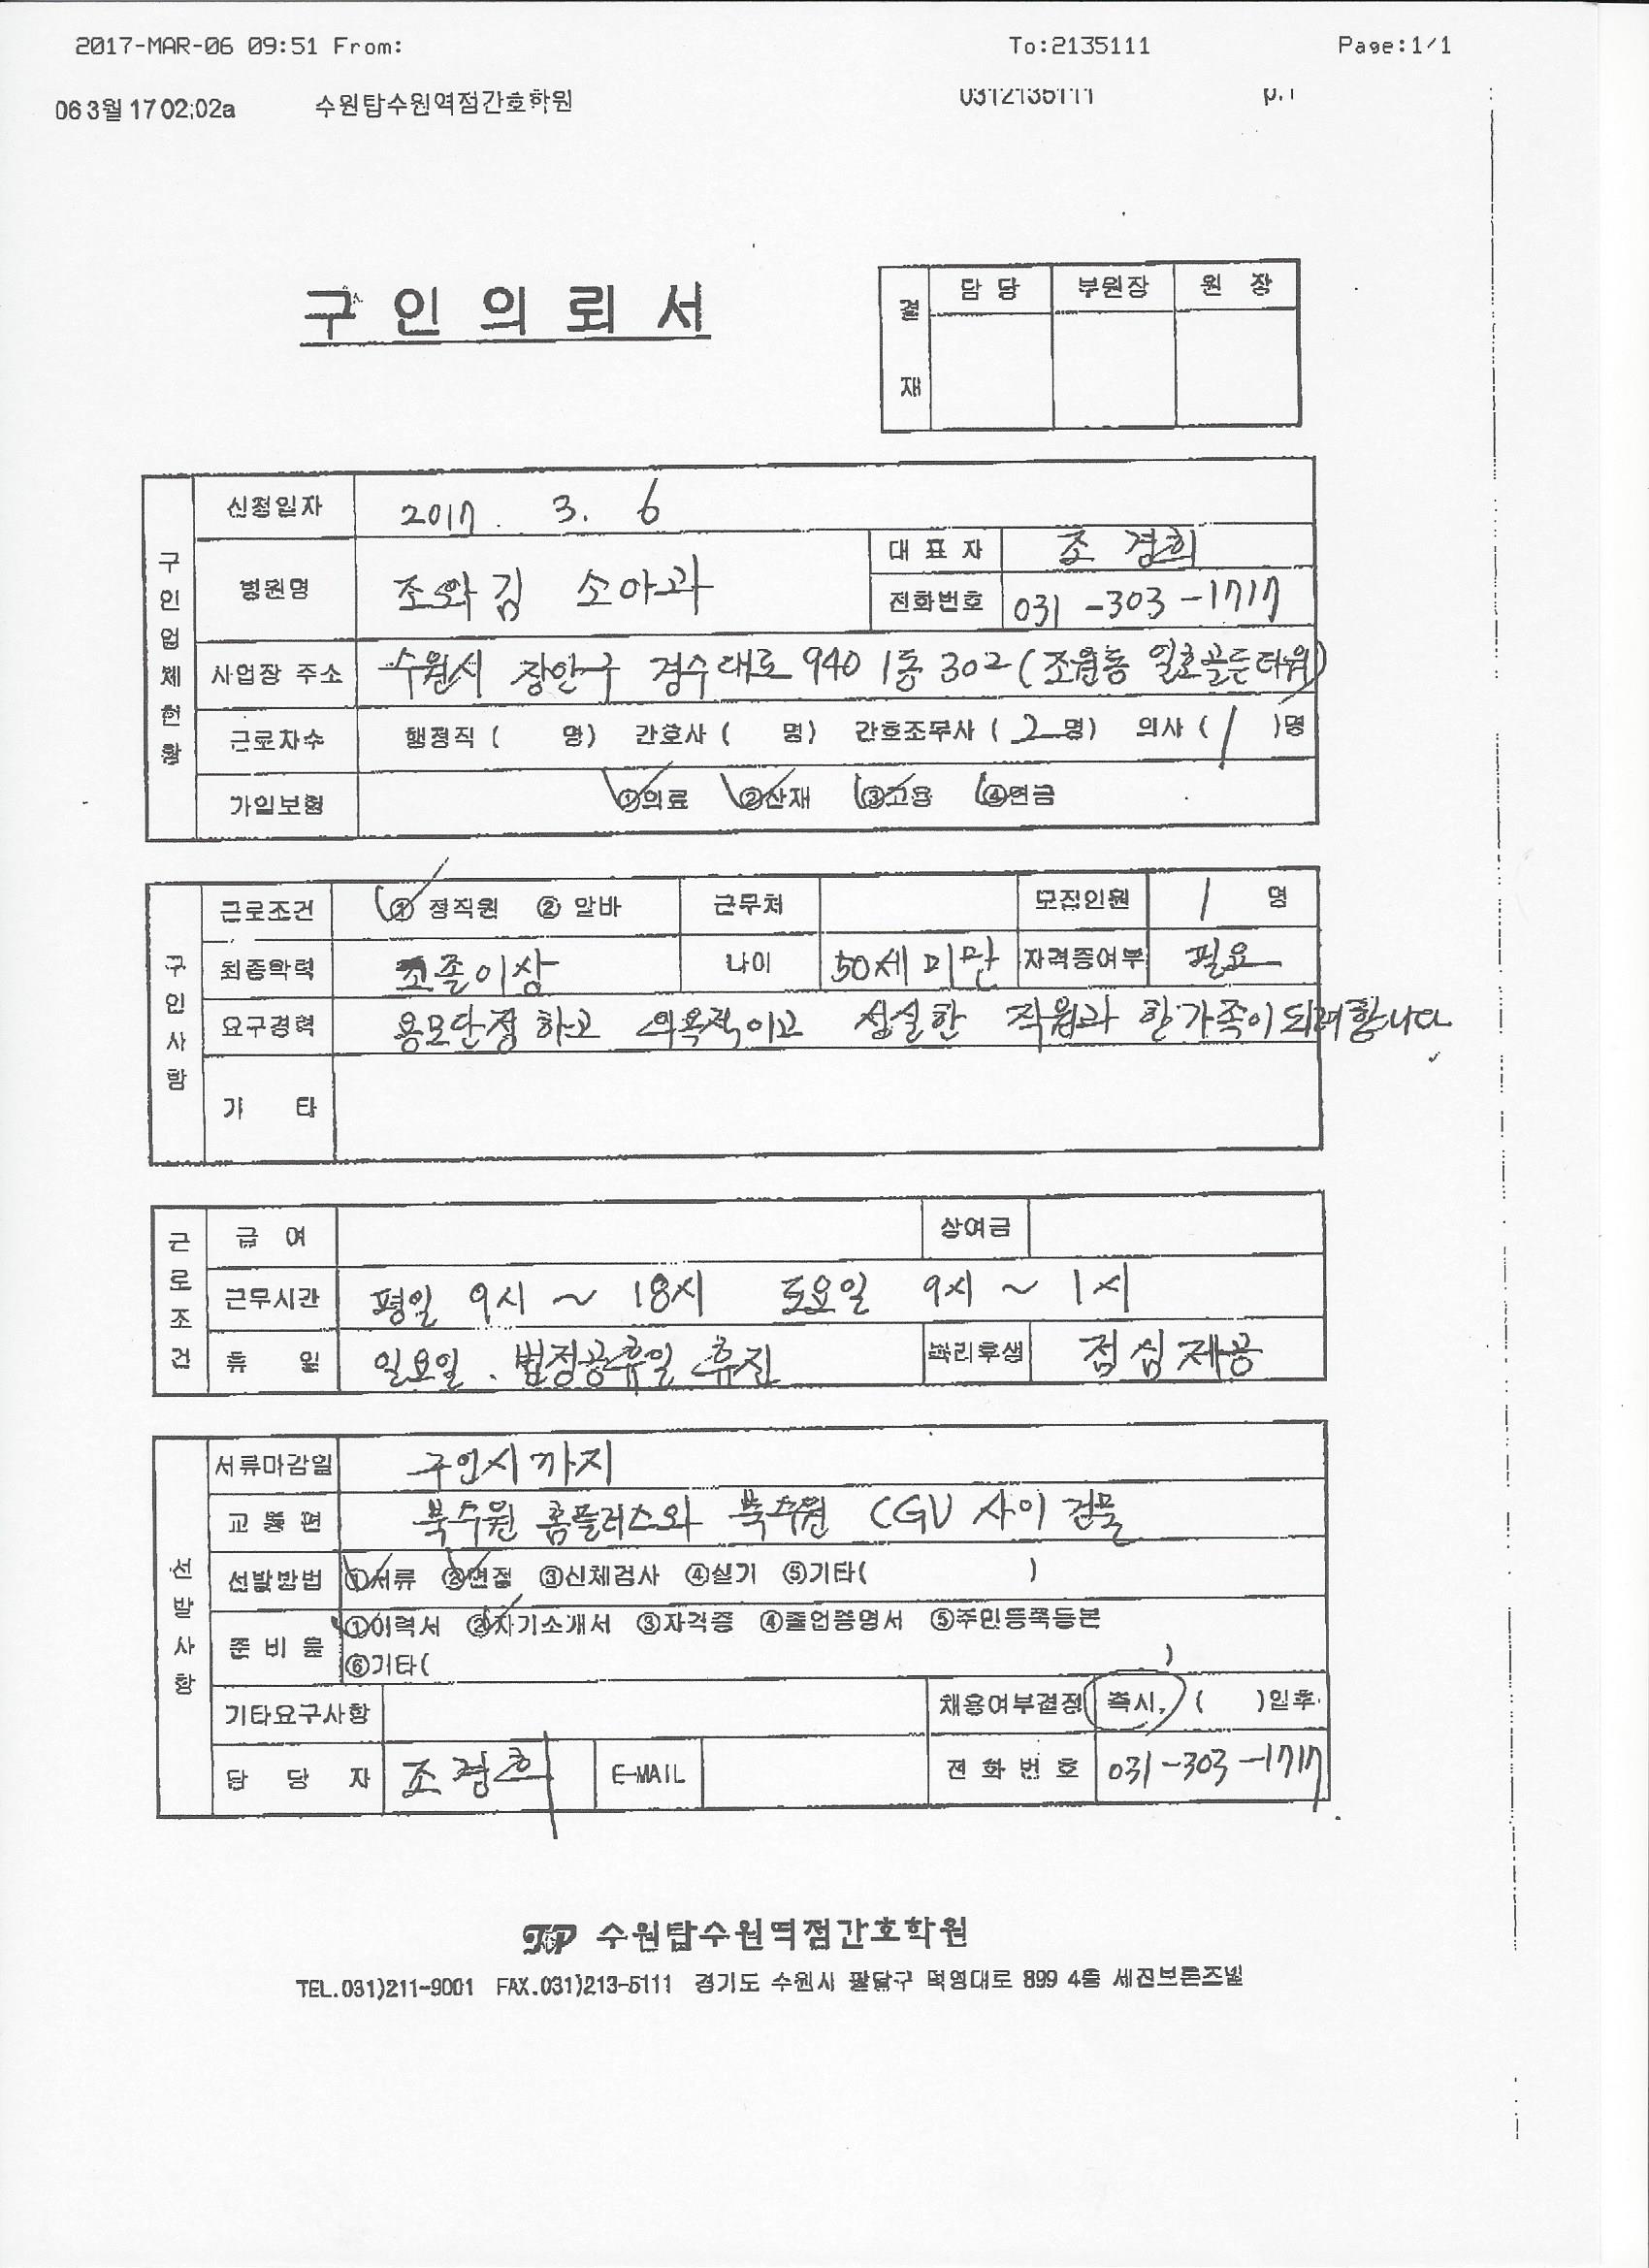 2017-MAR-06 09:51 From: To:2135111 Page:1/1
06 3월 17 02:02a 수원탑수원역점간호학원 0312135111 p.1
구 인 의 뢰 서
결 재 담 당 부원장 원 장
구인업체현황
신청일자 2017. 3. 6
병원명 조와김 소아과
대 표 자 조 경희
전화번호 031-303-1717
사업장 주소 수원시 장안구 경수대로 940 1동 302 (조원동 골든타워)
근로자수 행정직 ( 명) 간호사 ( 명) 간호조무사 ( 2 명) 의사 ( 1 )명
가입보험 ①의료 ②산재 ③고용 ④연금
구인사항
근로조건 ① 정직원 ② 알바 근무처 모집인원 1 명
최종학력 고졸이상 나이 50세 미만 자격증여부 필요
요구경력 용모단정 하고 의욕적이고 성실한 직원과 한가족이 되려합니다
기 타
근로조건
급 여 상여금
근무시간 평일 9시 ~ 18시 토요일 9시 ~ 1시
휴 일 일요일. 법정공휴일 휴진 복리후생 점심제공
선발사항
서류마감일 구인시 까지
교 통 편 북수원 홈플러스와 북수원 CGV 사이 건물
선발방법 ①서류 ②면접 ③신체검사 ④실기 ⑤기타( )
준 비 물 ①이력서 ②자기소개서 ③자격증 ④졸업증명서 ⑤주민등록등본
⑥기타( )
기타요구사항 채용여부결정 즉시, ( )일후
담 당 자 조경희 E-MAIL 전 화 번 호 031-303-1717
TOP 수원탑수원역점간호학원
TEL.031)211-9001 FAX.031)213-5111 경기도 수원시 팔달구 덕영대로 899 4층 세진브론즈빌